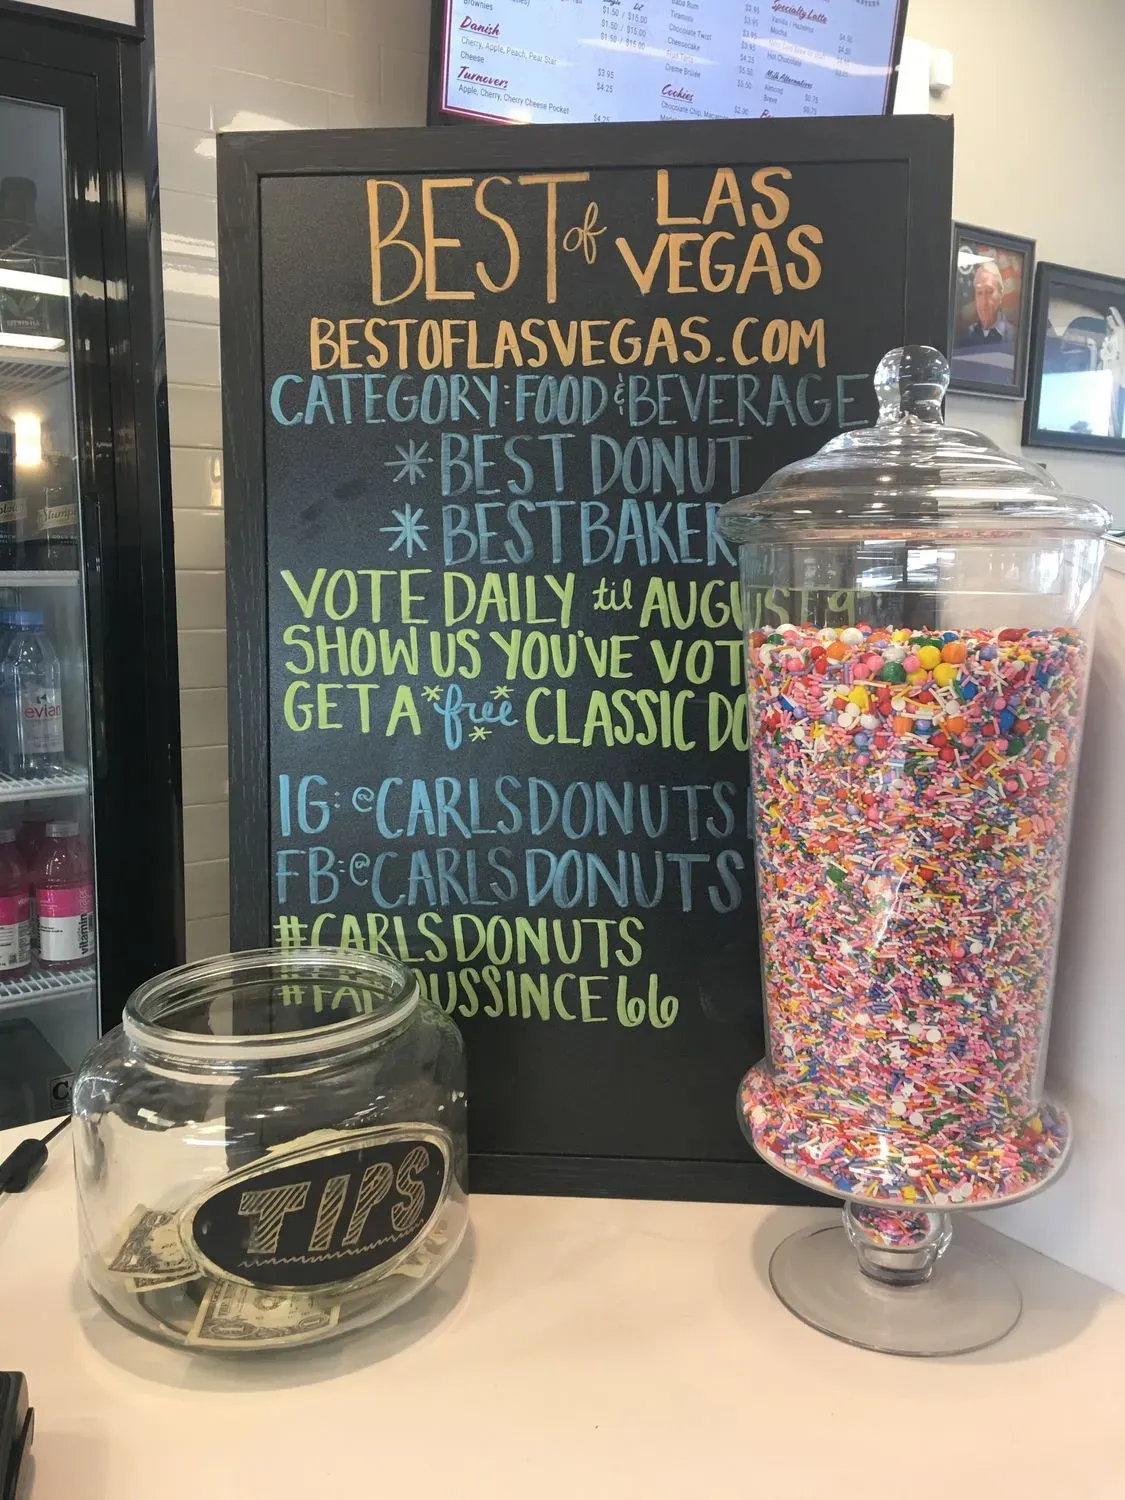 Brownies
Danish
Cherry, Apple, Peach, Pear Star
Cheese
Turnovers
Apple, Cherry, Cherry Cheese Pocket
$1.50 / $15.00
$1.50 / $15.00
$1.50 / $15.00
$3.95
$4.25
$4.25
Baba Rum
Tiramisu
Chocolate Twist
Cheesecake
Fruit Tarts
Creme Brulee
Cookies
Chocolate Chip,
$3.95
$3.95
$3.95
$4.25
$5.50
$5.50
$2.00
Specialty Latte
Vanilla / Hazelnut
Mocha
Hot Chocolate
Milk Alternatives
Almond $0.75
Breve $0.75
BEST of LAS VEGAS
BESTOFLASVEGAS.COM
CATEGORY: FOOD & BEVERAGE
* BEST DONUT
* BEST BAKER
VOTE DAILY til AUGUST 9th
SHOW US YOU'VE VOT
GET A *free* CLASSIC DO
IG: @CARLSDONUTS
FB: @CARLSDONUTS
#CARLSDONUTS
#FAMOUSSINCE66
TIPS
evian
vitamin